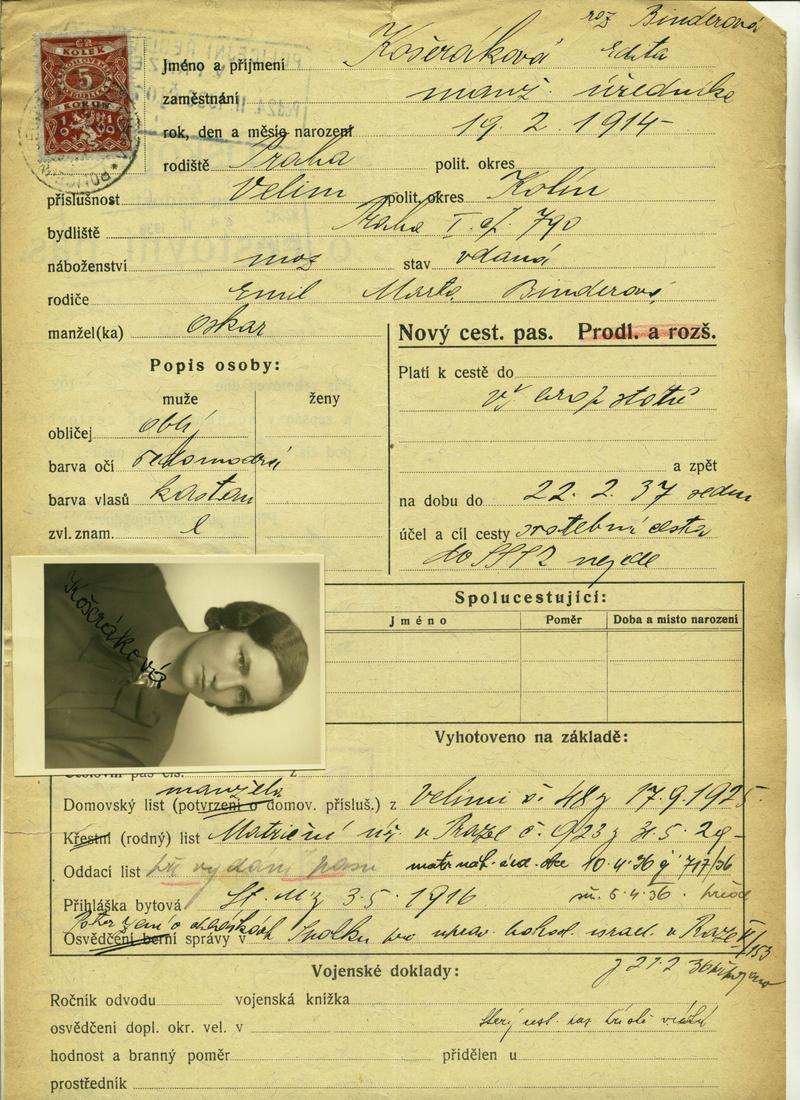 roz Binderová
Jméno a příjmení Košeráková Edita
zaměstnání manž. úředníka
rok, den a měsíc narození 19. 2. 1914
rodiště Praha polit. okres
příslušnost Velim polit. okres Kolín
bydliště Praha I. čj. 790
náboženství moz stav vdaná
rodiče Emil Marta Binderová
manžel(ka) Oskar
Nový cest. pas. Prodl. a rozš.
Popis osoby:
muže ženy
obličej oblý
barva očí šedomodrá
barva vlasů kaštan
zvl. znam.
Platí k cestě do
vš evrop států
a zpět
na dobu do 22. 2. 37
účel a cíl cesty svatební cesta
do SSSR nejede
Košeráková
KOLEK
5
KORUN
1910
Spolucestující:
Jméno Poměr Doba a místo narození
Vyhotoveno na základě:
manžela
Domovský list (potvrzení o domov. přísluš.) z Velimi č. 48 z 17. 9. 1925.
Křestní (rodný) list Matriční úř. v Praze č. 923 z 31. 5. 29
Oddací list při vydání pasu 10. 4. 36 717/36
Přihláška bytová z 3. 5. 1916 5. 4. 36
Osvědčení berní správy v Spolku pro israel. v Praze II/153
z 21. 2. 36
Vojenské doklady:
Ročník odvodu vojenská knížka
osvědčení dopl. okr. vel. v
hodnost a branný poměr přidělen u
prostředník